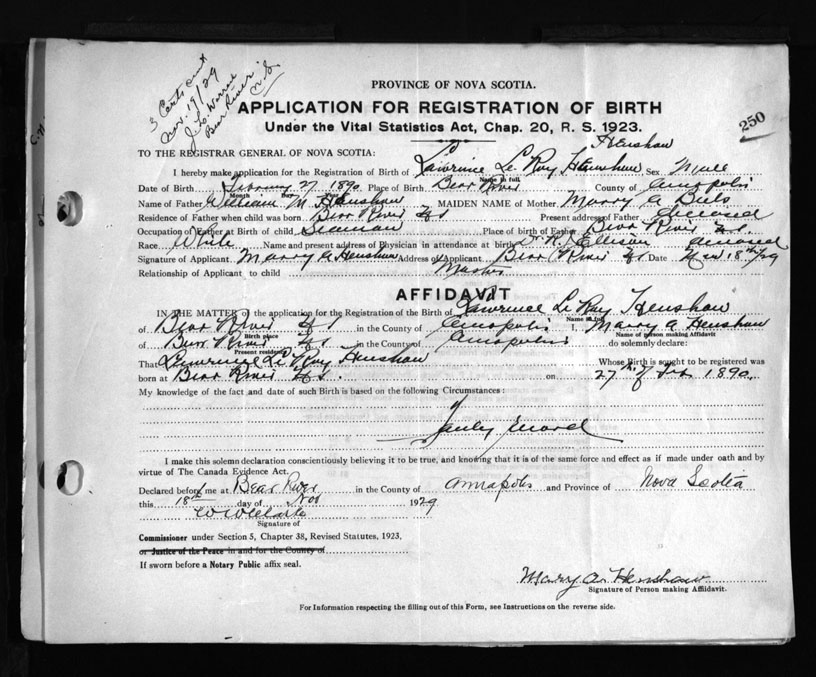 3 Certs sent
Nov. 19/29
Bear River
N.S.
250
PROVINCE OF NOVA SCOTIA.
APPLICATION FOR REGISTRATION OF BIRTH
Under the Vital Statistics Act, Chap. 20, R. S. 1923.
TO THE REGISTRAR GENERAL OF NOVA SCOTIA:
Henshaw
I hereby make application for the Registration of Birth of Lawrence Le Roy Henshaw Sex Male
Name in full
Date of Birth February 27 1890 Place of Birth Bear River County of Annapolis
Month Day Year
Name of Father William M Henshaw MAIDEN NAME of Mother Marry A
Residence of Father when child was born Bear River NS Present address of Father
Occupation of Father at Birth of child Seaman Place of birth of Father Bear River NS
Race White Name and present address of Physician in attendance at birth Dr. R. J. Ellison
Signature of Applicant Marry A Henshaw Address of Applicant Bear River NS Date Nov 18th/29
Relationship of Applicant to child Mother
AFFIDAVIT
IN THE MATTER of the application for the Registration of the Birth of Lawrence Le Roy Henshaw
Name in full
of Bear River NS in the County of Annapolis I, Marry A Henshaw
Birth place Name of person making Affidavit
of Bear River NS in the County of Annapolis do solemnly declare:
Present residence
That Lawrence Le Roy Henshaw Whose Birth is sought to be registered was
born at Bear River NS. on 27th of Feb 1890
My knowledge of the fact and date of such Birth is based on the following Circumstances:
I make this solemn declaration conscientiously believing it to be true, and knowing that it is of the same force and effect as if made under oath and by
virtue of The Canada Evidence Act.
Declared before me at Bear River in the County of Annapolis and Province of Nova Scotia
this 18th day of Nov 1929
W W Clarke
Signature of
Commissioner under Section 5, Chapter 38, Revised Statutes, 1923,
or Justice of the Peace in and for the County of
If sworn before a Notary Public affix seal.
Mary A. Henshaw
Signature of Person making Affidavit.
For Information respecting the filling out of this Form, see Instructions on the reverse side.